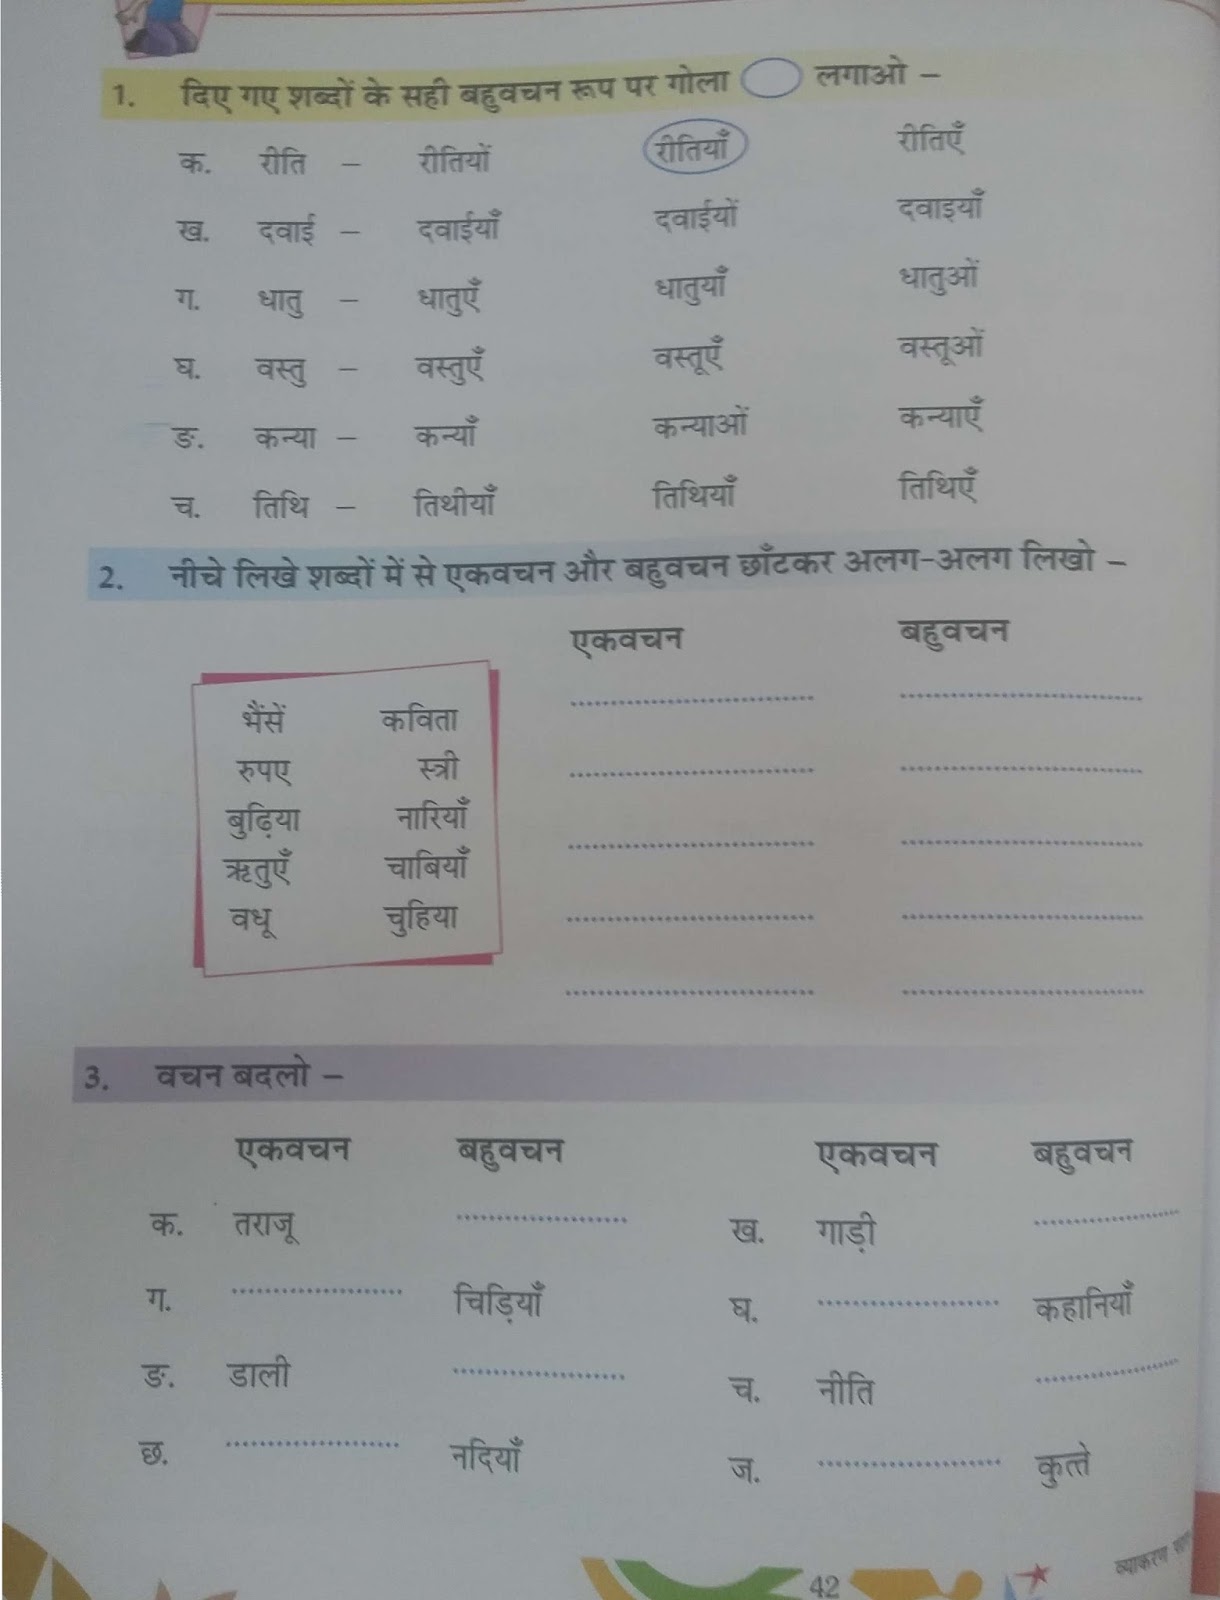 1. दिए गए शब्दों के सही बहुवचन रूप पर गोला लगाओ –
क. रीति – रीतियों रीतियाँ रीतिएँ
ख. दवाई – दवाईयाँ दवाईयों दवाइयाँ
ग. धातु – धातुएँ धातुयाँ धातुओं
घ. वस्तु – वस्तुएँ वस्तूएँ वस्तूओं
ङ. कन्या – कन्याँ कन्याओं कन्याएँ
च. तिथि – तिथीयाँ तिथियाँ तिथिएँ
2. नीचे लिखे शब्दों में से एकवचन और बहुवचन छाँटकर अलग-अलग लिखो –
एकवचन बहुवचन
भैंसें कविता
रुपए स्त्री
बुढ़िया नारियाँ
ऋतुएँ चाबियाँ
वधू चुहिया
3. वचन बदलो –
एकवचन बहुवचन एकवचन बहुवचन
क. तराजू ख. गाड़ी
ग. चिड़ियाँ घ. कहानियाँ
ङ. डाली च. नीति
छ. नदियाँ ज. कुत्ते
42 व्याकरण